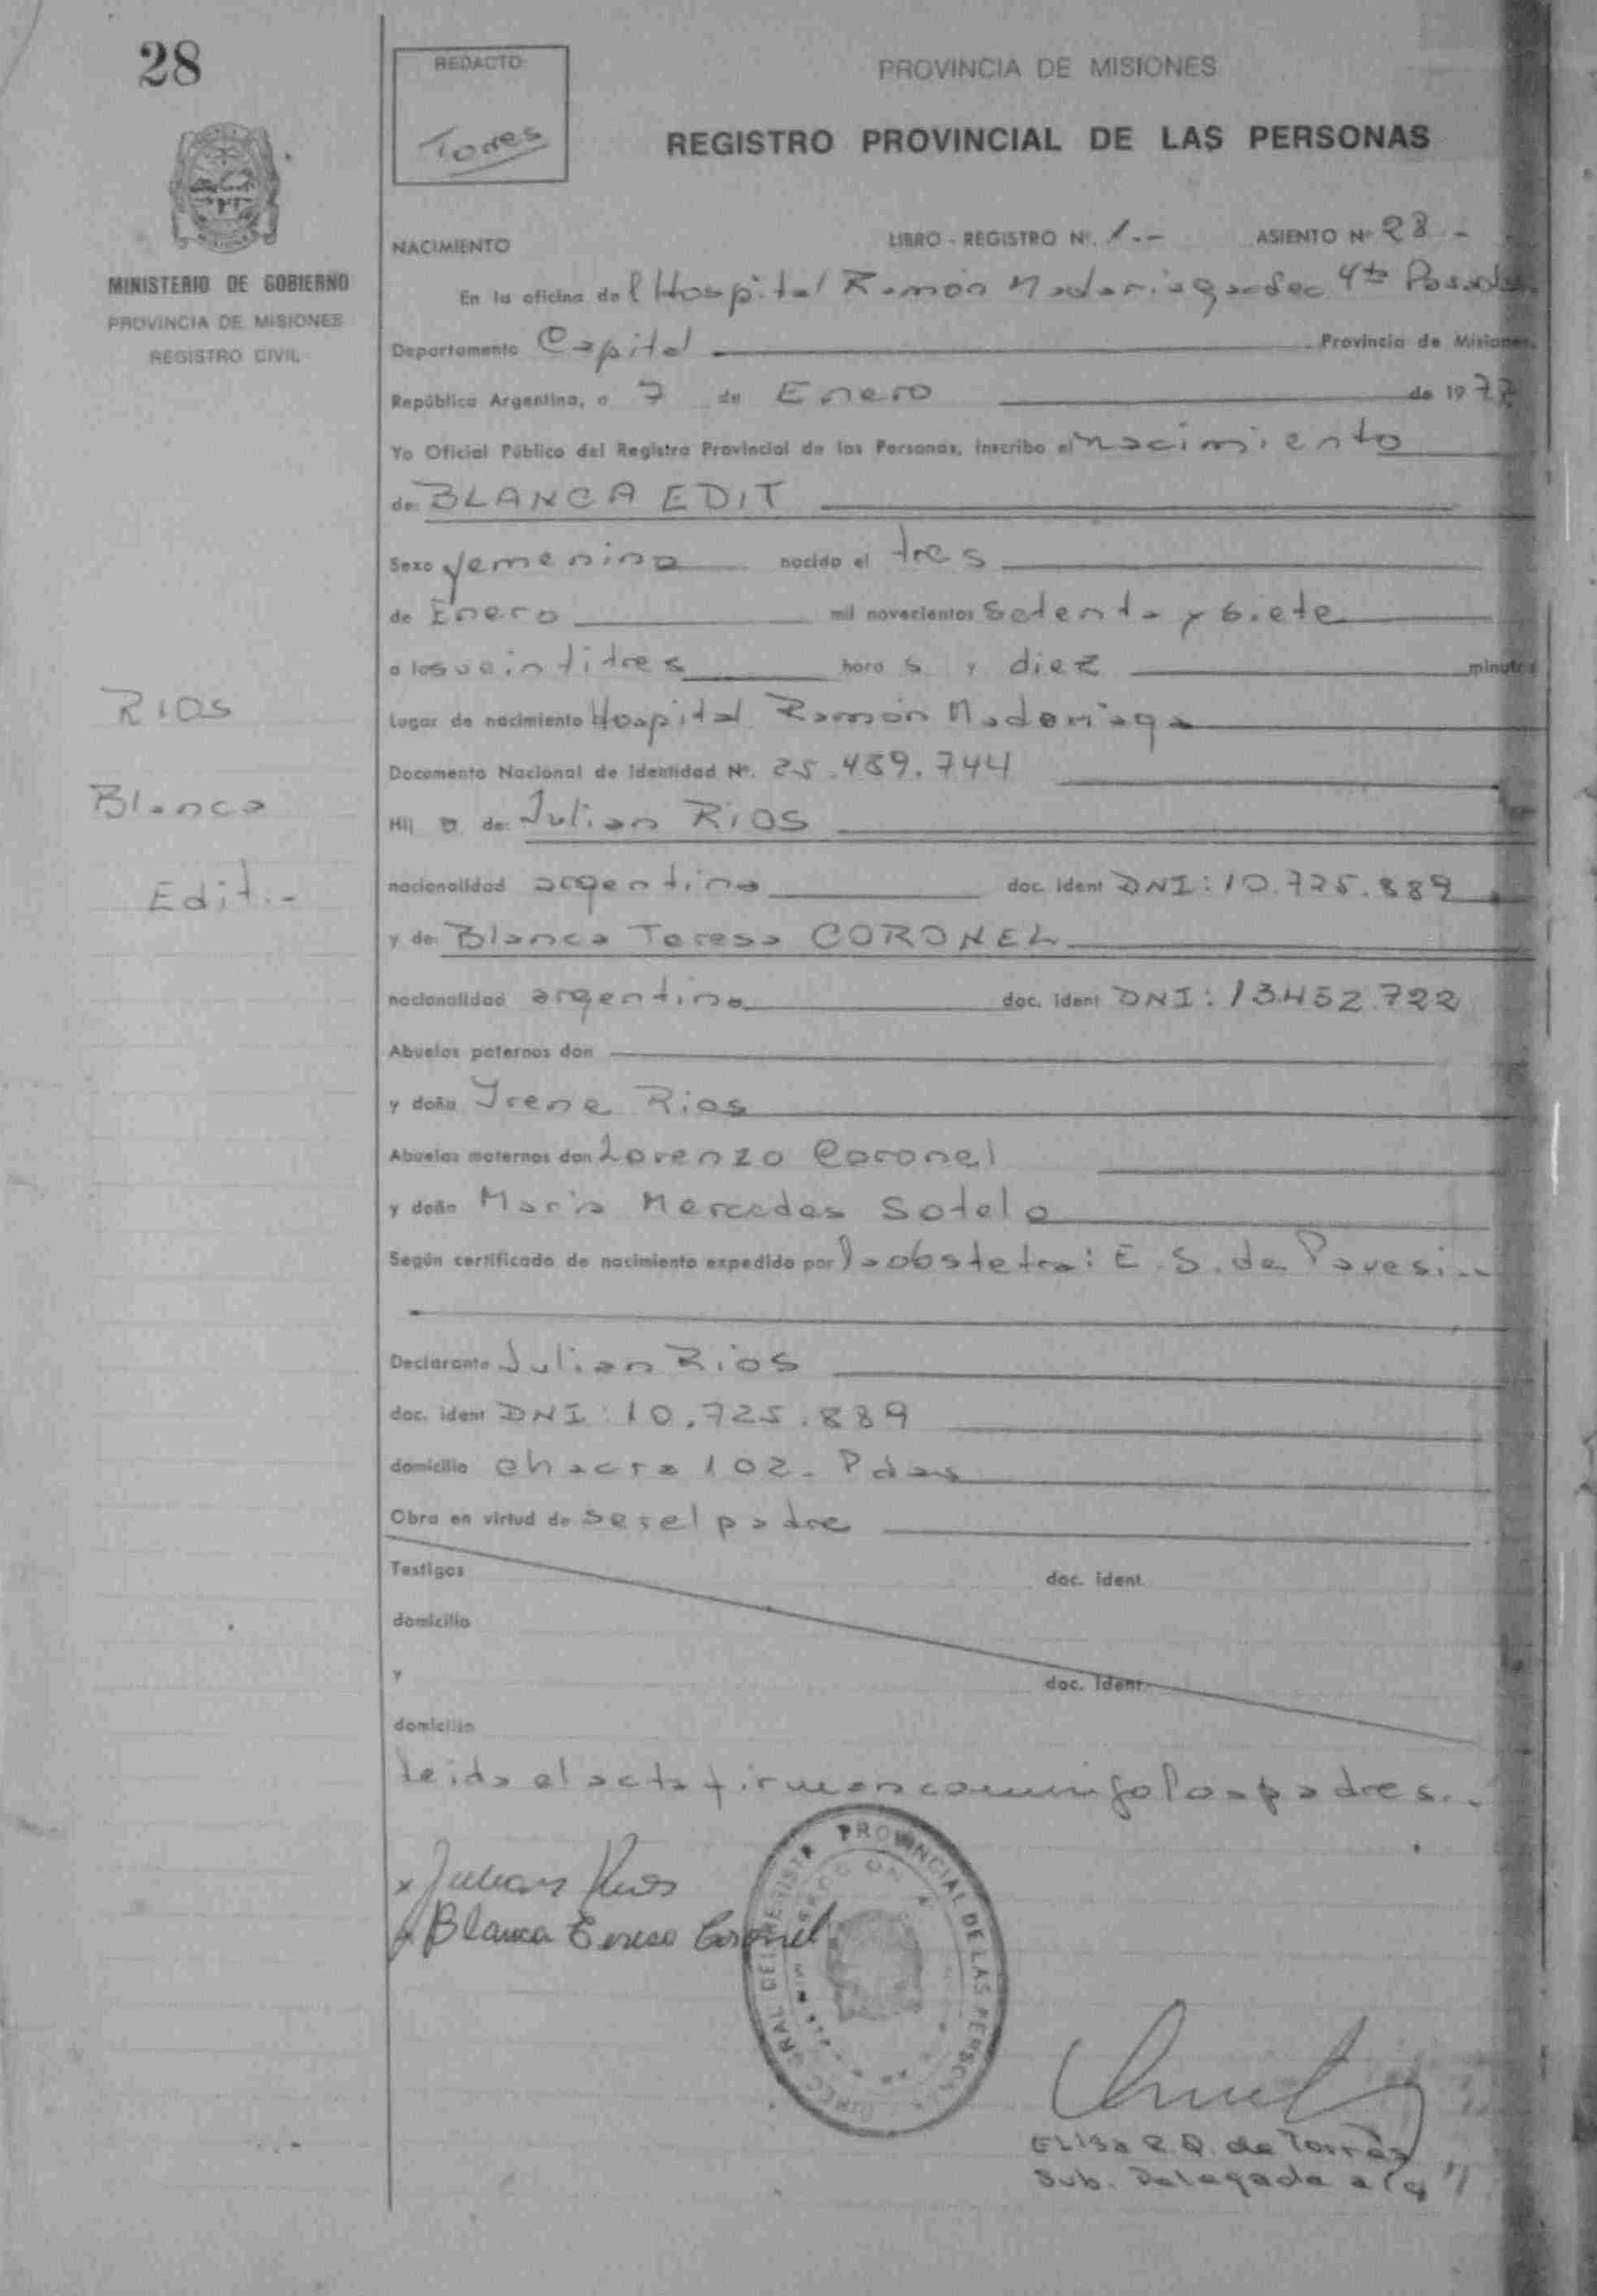 28
REDACTO
Torres
PROVINCIA DE MISIONES
REGISTRO PROVINCIAL DE LAS PERSONAS
MINISTERIO DE GOBIERNO
PROVINCIA DE MISIONES
REGISTRO CIVIL
NACIMIENTO LIBRO - REGISTRO Nº. 1.-- ASIENTO Nº 28 -
En la oficina del Hospital Ramón Madariaga Sec 4ta Posadas
Departamento Capital Provincia de Misiones,
República Argentina, a 7 de Enero de 1977
Yo Oficial Público del Registro Provincial de las Personas, inscribo el nacimiento
de: BLANCA EDIT
Sexo femenino nacido el tres
de Enero mil novecientos setenta y siete
a las veintitres hora s y diez minutos
Lugar de nacimiento Hospital Ramón Madariaga
Documento Nacional de Identidad Nº. 25.489.744
Hij a de: Julian RIOS
nacionalidad argentina doc. ident DNI: 10.725.889
y de: Blanca Teresa CORONEL
nacionalidad argentina doc. ident DNI: 13.452.722
Abuelos paternos don
y doña Irene Rios
Abuelos maternos don Lorenzo Coronel
y doña Maria Mercedes Sotelo
Según certificado de nacimiento expedido por la obstetra: E. S. de Pavesi.-
Declarante Julian Rios
doc. ident DNI: 10.725.889
domicilio chacra 102. Pdas
Obra en virtud de ser el padre
Testigos doc. ident.
domicilio
y doc. ident.
domicilio
Leida el acta firman conmigo los padres.-
x Julian Rios
x Blanca Teresa Coronel
PROVINCIAL DE LAS PERSONAS
Elisa R. Q. de Torres
Sub. Delegada a/c
RIOS
Blanca
Edit.-